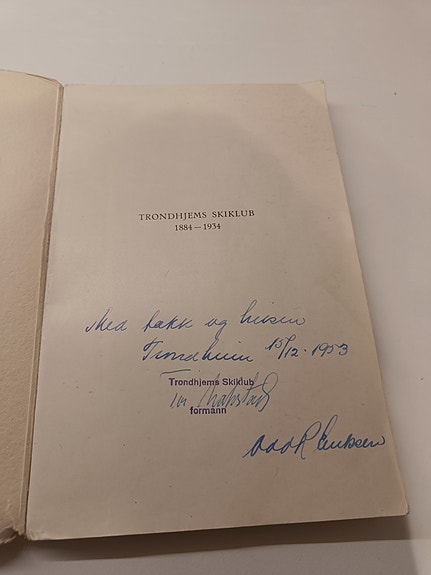 TRONDHJEMS SKIKLUB
1884—1934
Med takk og hilsen
Trondheim 15/12-1953
Trondhjems Skiklub
formann
Odd R Eriksen